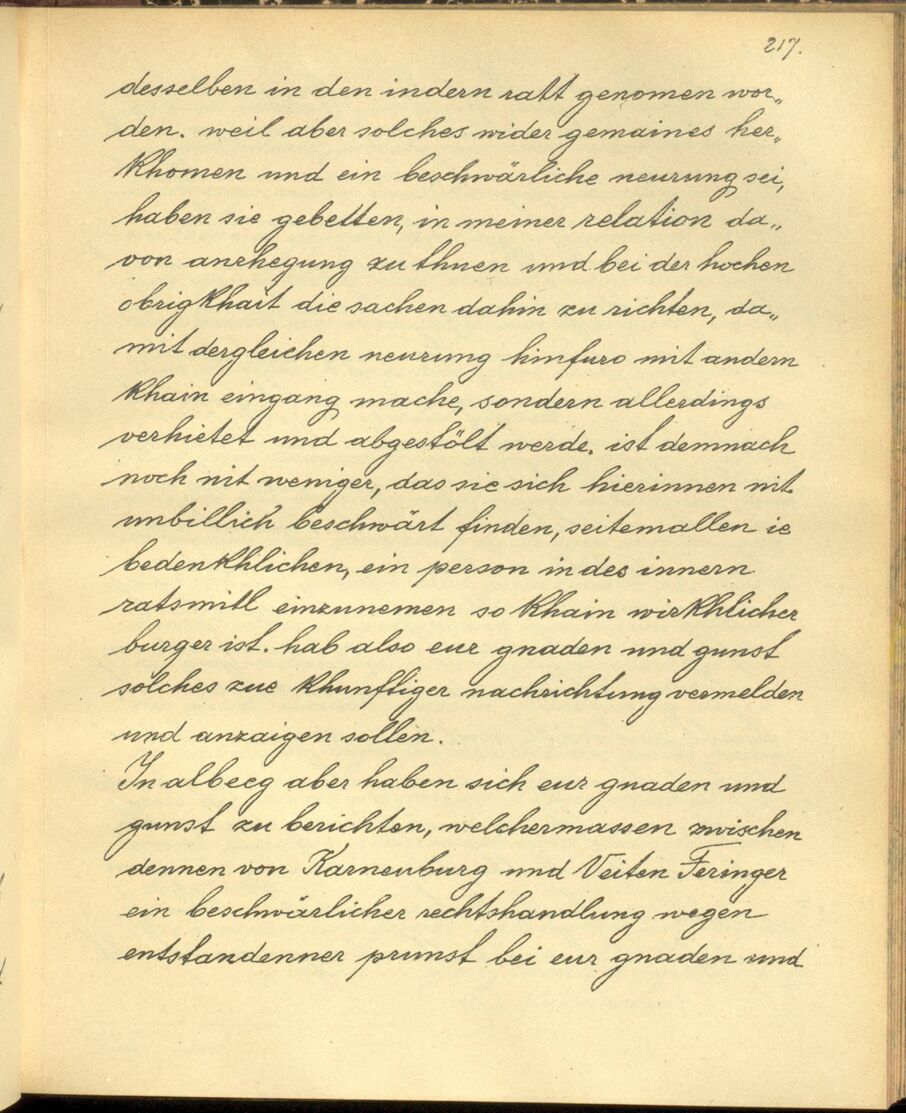 217.
desselben in den indern ratt genomen wor„
den. weil aber solches wider gemaines her„
khomen und ein beschwärliche neurung sei,
haben sie gebetten, in meiner relation da„
von anrhegung zu thuen und bei der hochen
obrigkhait die sachen dahin zu richten, da„
mit dergleichen neurung hinfuro mit andern
khain eingang mache, sondern allerdings
verhietet und abgestölt werde. ist demnach
noch nit weniger, das sie sich hierinnen nit
unbillich beschwärt finden, seitemallen ie
bedenkhlichen, ein person in des innern
ratsmitl einzunemen so khain wirkhlicher
burger ist. hab also eur gnaden und gunst
solches zue khunftiger nachrichtung vermelden
und anzaigen sollen.
In albeeg aber haben sich eur gnaden und
gunst zu berichten, welchermassen zwischen
dennen von Karneuburg und Veiten Feringer
ein beschwärlicher rechtshandlung wegen
entstandenner prunst bei eur gnaden und